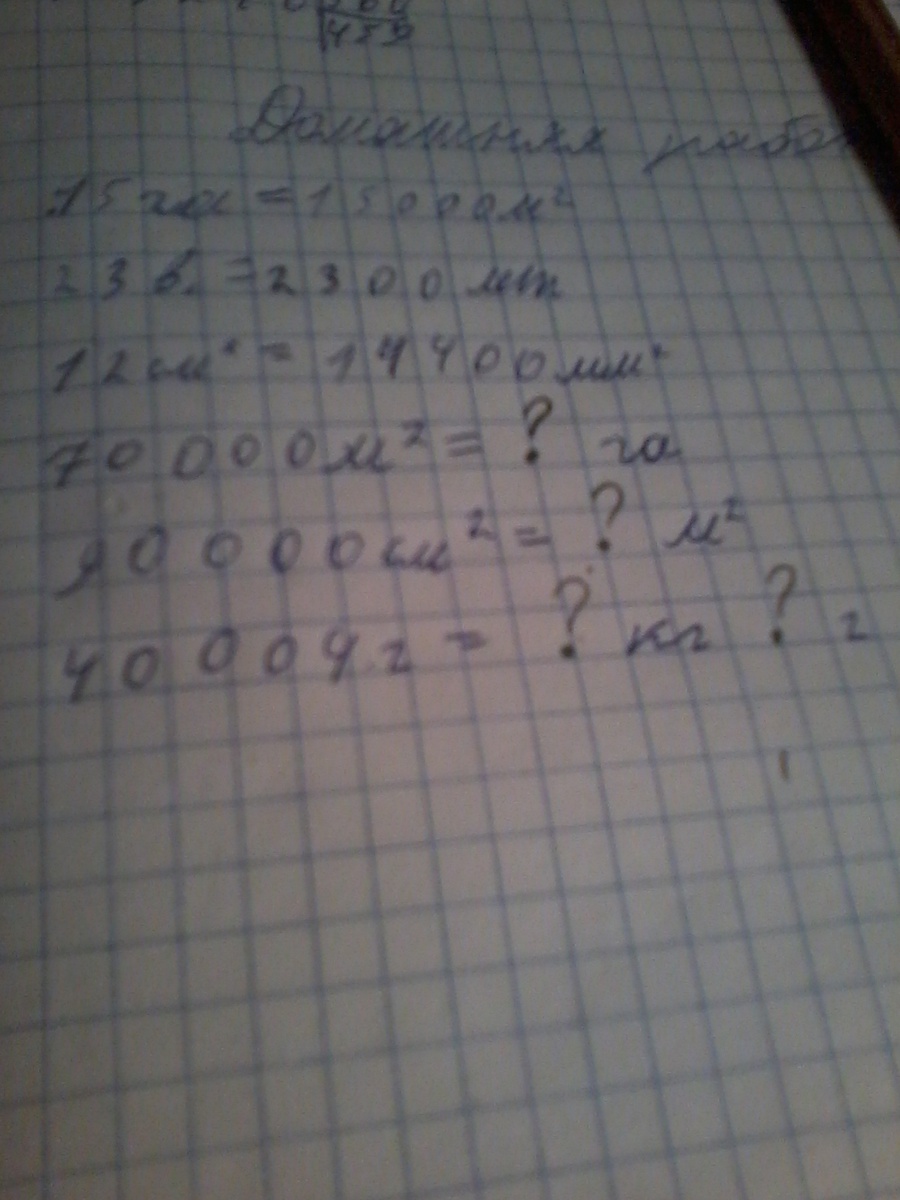 459
Домашняя
15 га = 15000м²
23 = 2300
12см² = 14400мм²
70000м² = ? га
90000см² = ? м²
40004г = ? кг ? г